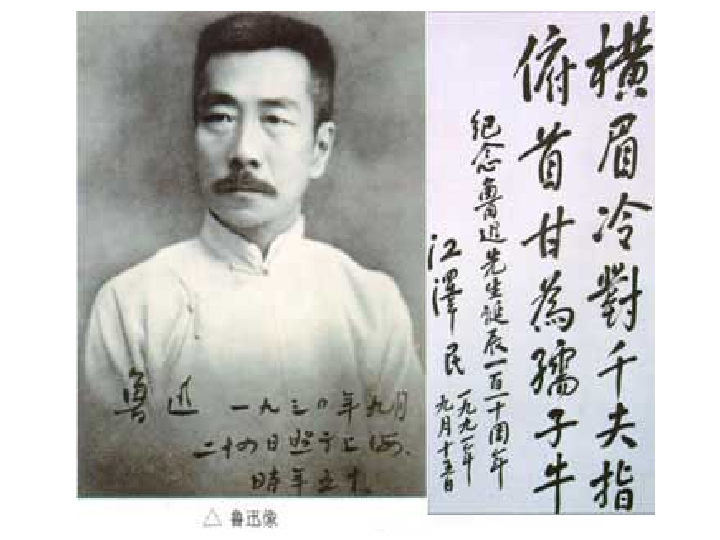 魯迅 一九三〇年九月
二十四日照于上海,
時年五十.
△ 鲁迅像
橫眉冷對千夫指
俯首甘為孺子牛
紀念魯迅先生誕辰一百一十周年
江澤民
一九九一年
九月十五日